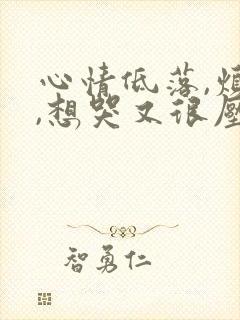 心情低落,烦
,想哭又很压
智勇仁